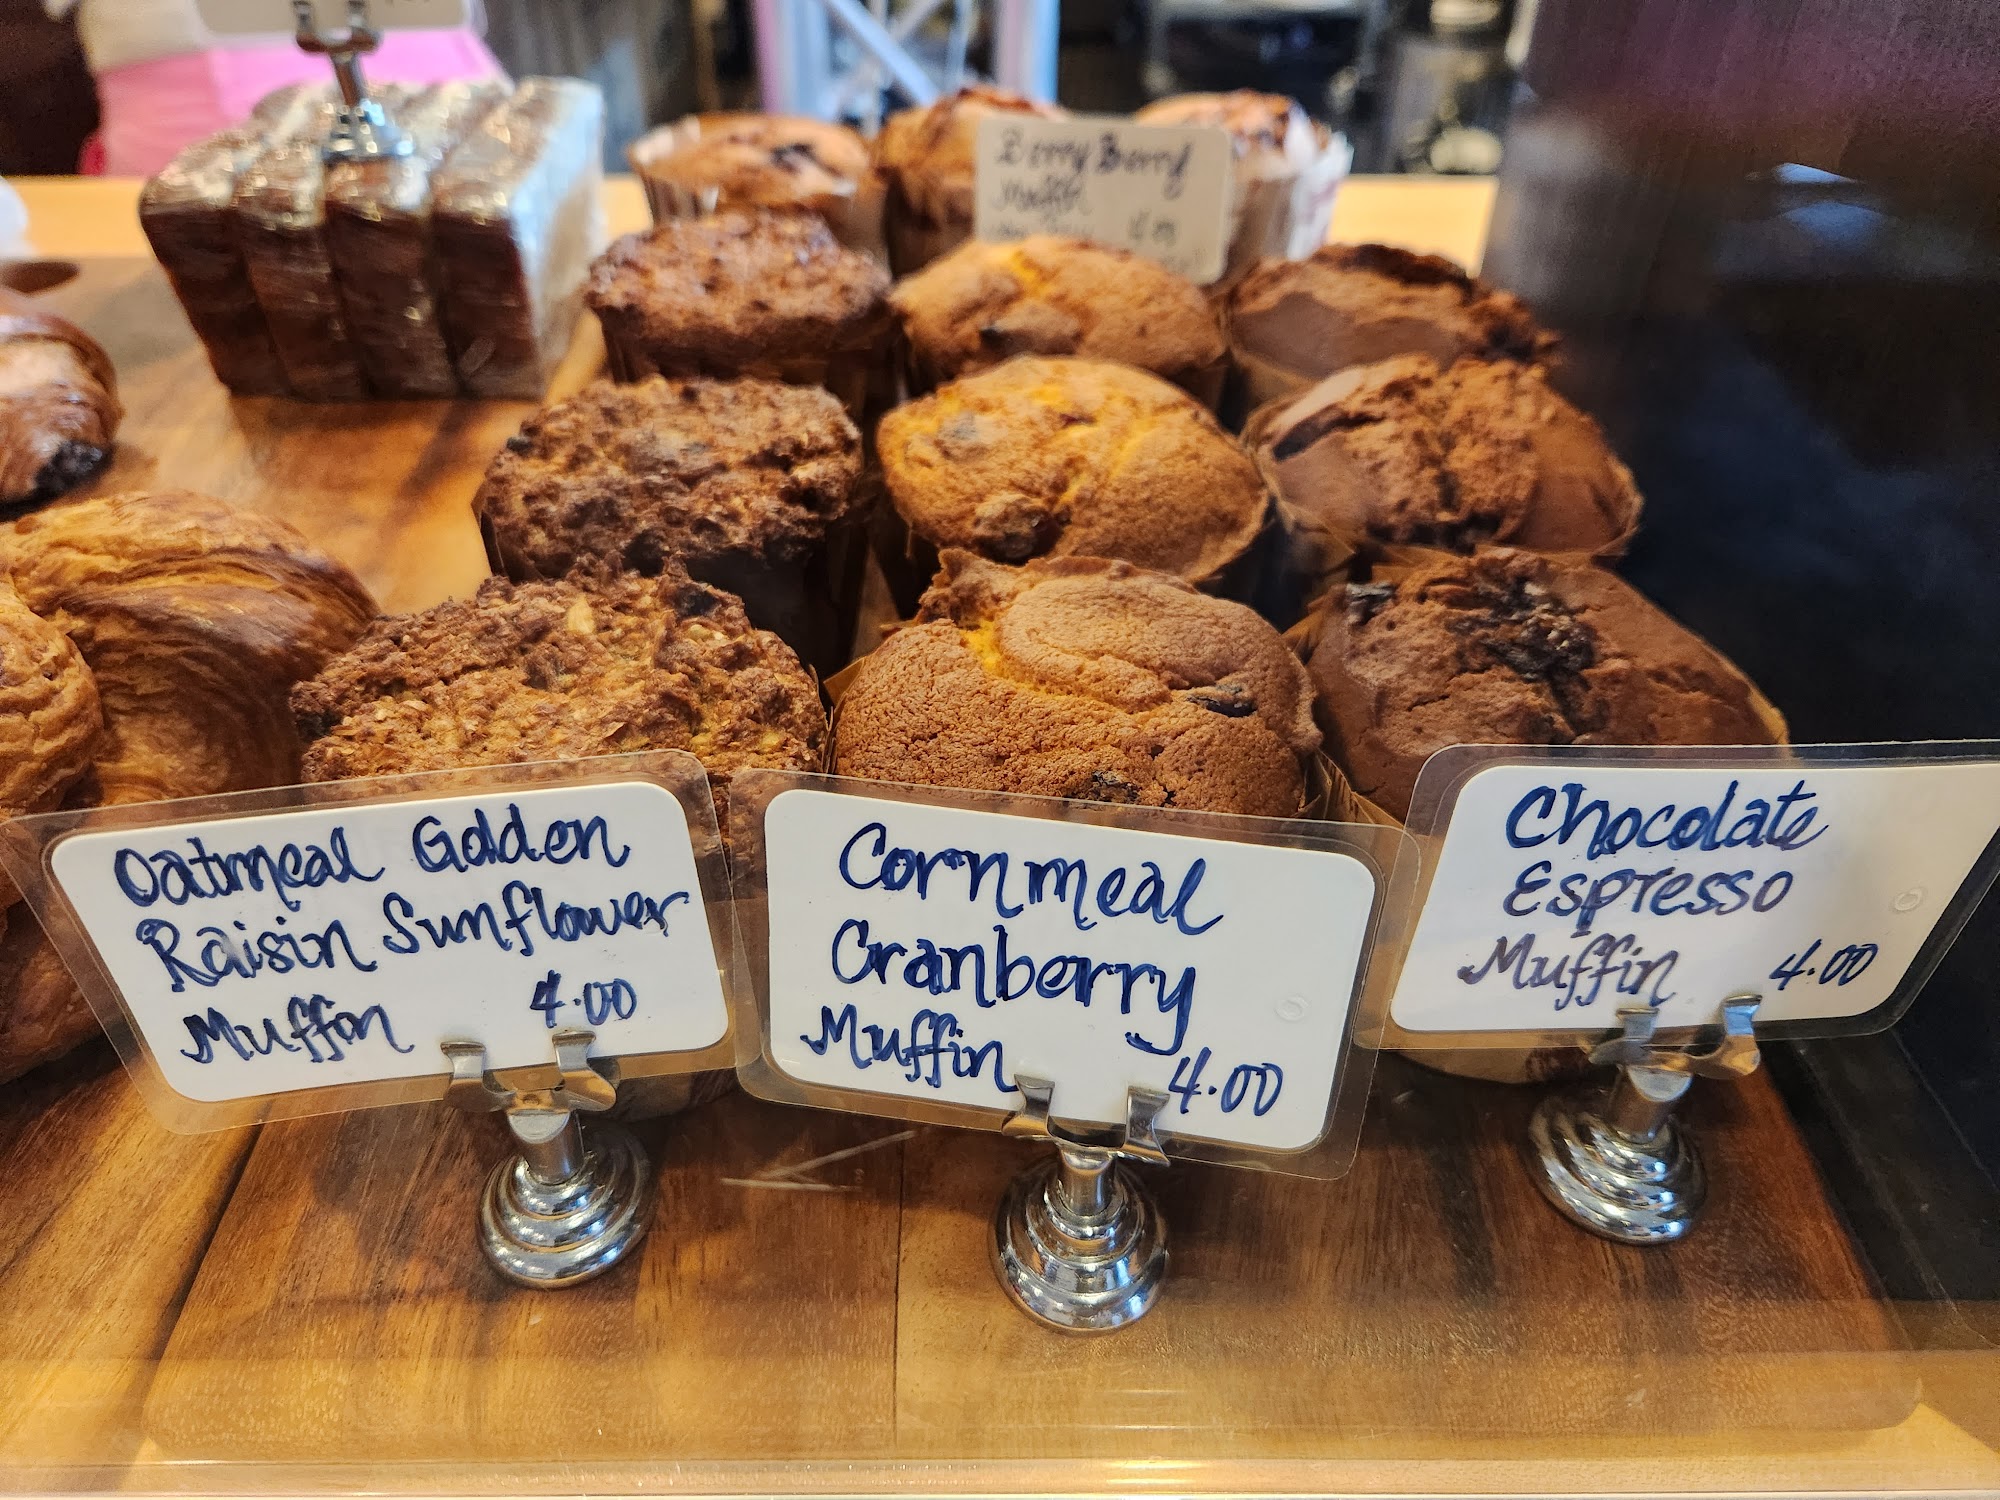 Berry Berry
Muffin
Oatmeal Golden
Raisin Sunflower
Muffin 4.00
Cornmeal
Cranberry
Muffin 4.00
Chocolate
Espresso
Muffin 4.00